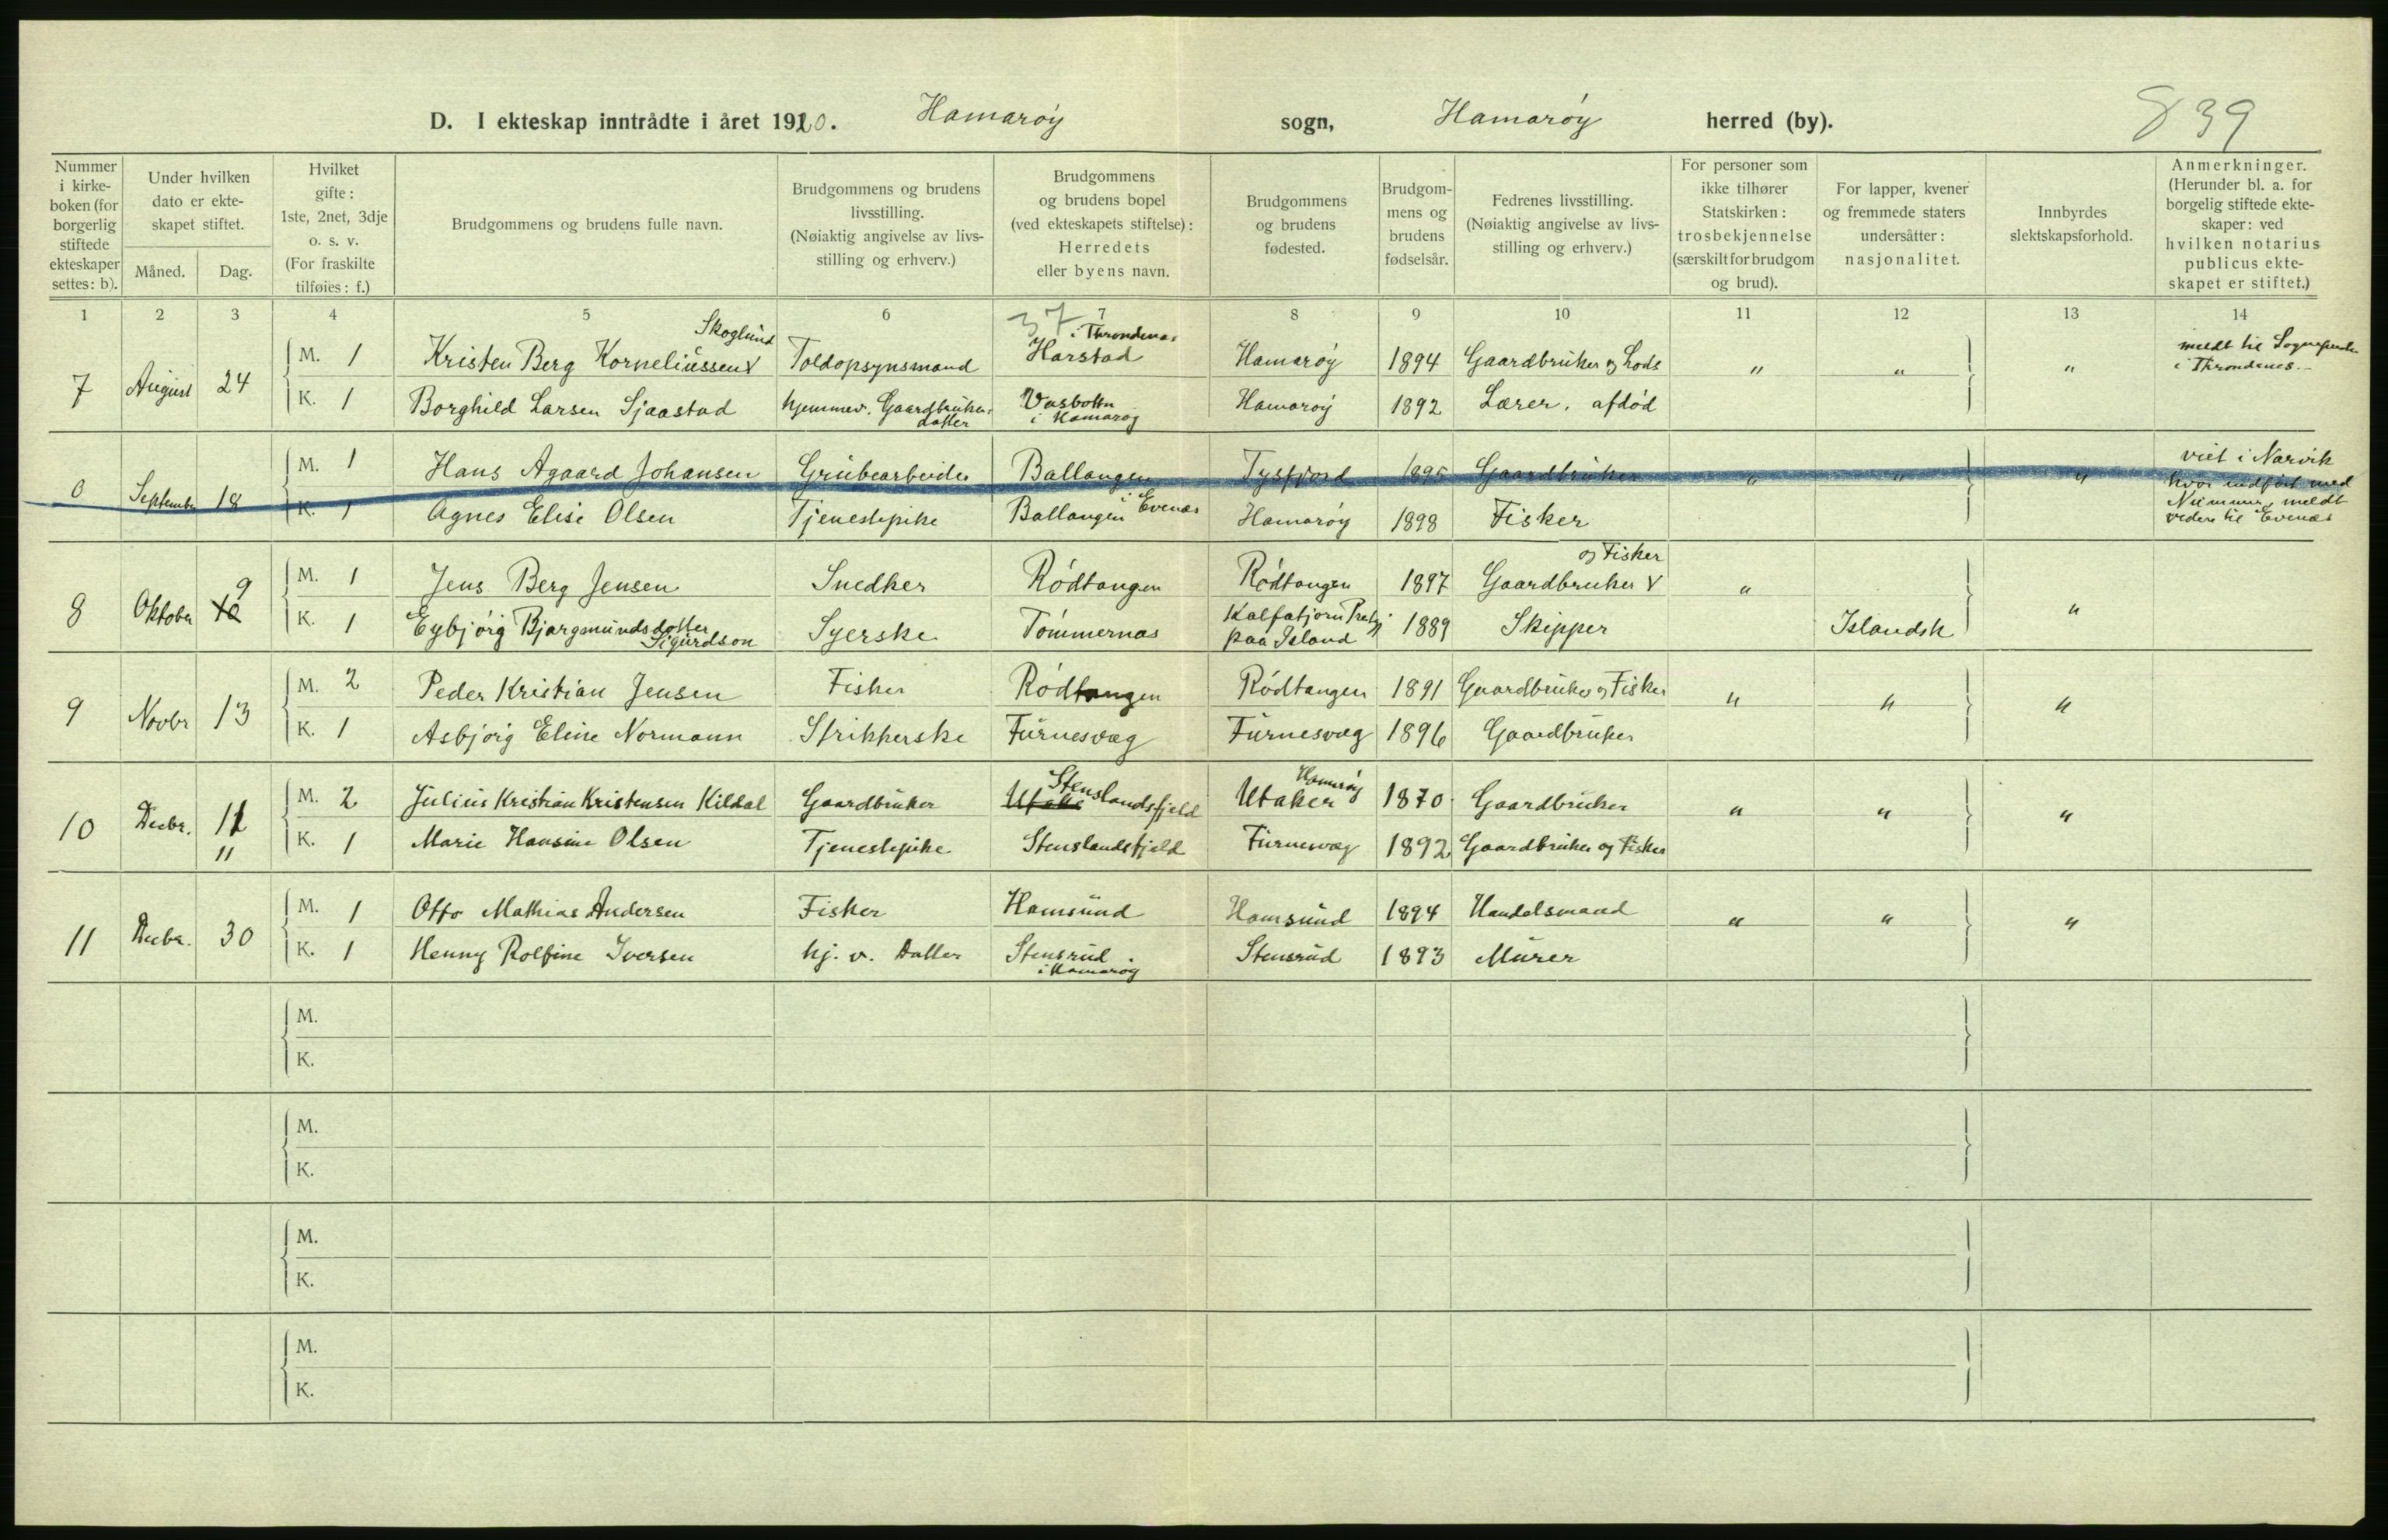 839
D. I ekteskap inntrådte i året 1920. Hamarøy sogn, Hamarøy herred (by).
Nummer i kirkeboken (for borgerlig stiftede ekteskaper settes: b).
Under hvilken dato er ekteskapet stiftet.
Måned. Dag.
Hvilket gifte: 1ste, 2net, 3dje o. s. v. (For fraskilte tilføies: f.)
Brudgommens og brudens fulle navn.
Brudgommens og brudens livsstilling. (Nøiaktig angivelse av livsstilling og erhverv.)
Brudgommens og brudens bopel (ved ekteskapets stiftelse): Herredets eller byens navn.
Brudgommens og brudens fødested.
Brudgommens og brudens fødselsår.
Fedrenes livsstilling. (Nøiaktig angivelse av livsstilling og erhverv.)
For personer som ikke tilhører Statskirken: trosbekjennelse (særskilt for brudgom og brud).
For lapper, kvener og fremmede staters undersåtter: nasjonalitet.
Innbyrdes slektskapsforhold.
Anmerkninger. (Herunder bl. a. for borgelig stiftede ekteskaper: ved hvilken notarius publicus ekteskapet er stiftet.)
1 2 3 4 5 6 7 8 9 10 11 12 13 14
37
7 August 24 M. 1 Kristen Berg Korneliussen Skoglund Toldopsynsmand Harstad i Throndenes Hamarøy 1894 Gaardbruker og Lods " " " meldt til Sogneprest i Throndenes.-
K. 1 Borghild Larsen Sjaastad hjemmev. Gaardbruker datter Vasbotn i Hamarøy Hamarøy 1892 Lærer, afdød
0 September 18 M. 1 Hans Agaard Johansen Grubearbeider Ballangen Tysfjord 1895 Gaardbruker " " " viet i Narvik hvor indført med Nummer, meldt videre til Evenæs
K. 1 Agnes Elise Olsen Tjenestepike Ballangen i Evenæs Hamarøy 1898 Fisker
8 Oktober 10 9 M. 1 Jens Berg Jensen Snedker Rödtangen Rödtangen 1897 Gaardbruker og Fisker " "
K. 1 Eybjörg Bjargmundsdotter Sigurdson Syerske Tömmernæs Kalfatjorn paa Island 1889 Skipper Islandsk
9 Novbr 13 M. 2 Peder Kristian Jensen Fisker Rödtangen Rödtangen 1891 Gaardbruker og Fisker " " "
K. 1 Asbjörg Eline Normann Strikkerske Furnesvæg Furnesvæg 1896 Gaardbruker
10 Decbr. 11 11 M. 2 Julius Kristian Kristensen Kildal Gaardbruker Utaker Stenslandsfjeld Utaker Hamarøy 1870 Gaardbruker " " "
K. 1 Marie Hansine Olsen Tjenestepike Stenslandsfjeld Furnesvæg 1892 Gaardbruker og Fisker
11 Decbr. 30 M. 1 Otto Mathias Andersen Fisker Hamsund Hamsund 1894 Handelsmand " " "
K. 1 Henny Rolfine Iversen hj. v. Datter Stensrud i Hamarøy Stensrud 1893 Murer
M.
K.
M.
K.
M.
K.
M.
K.